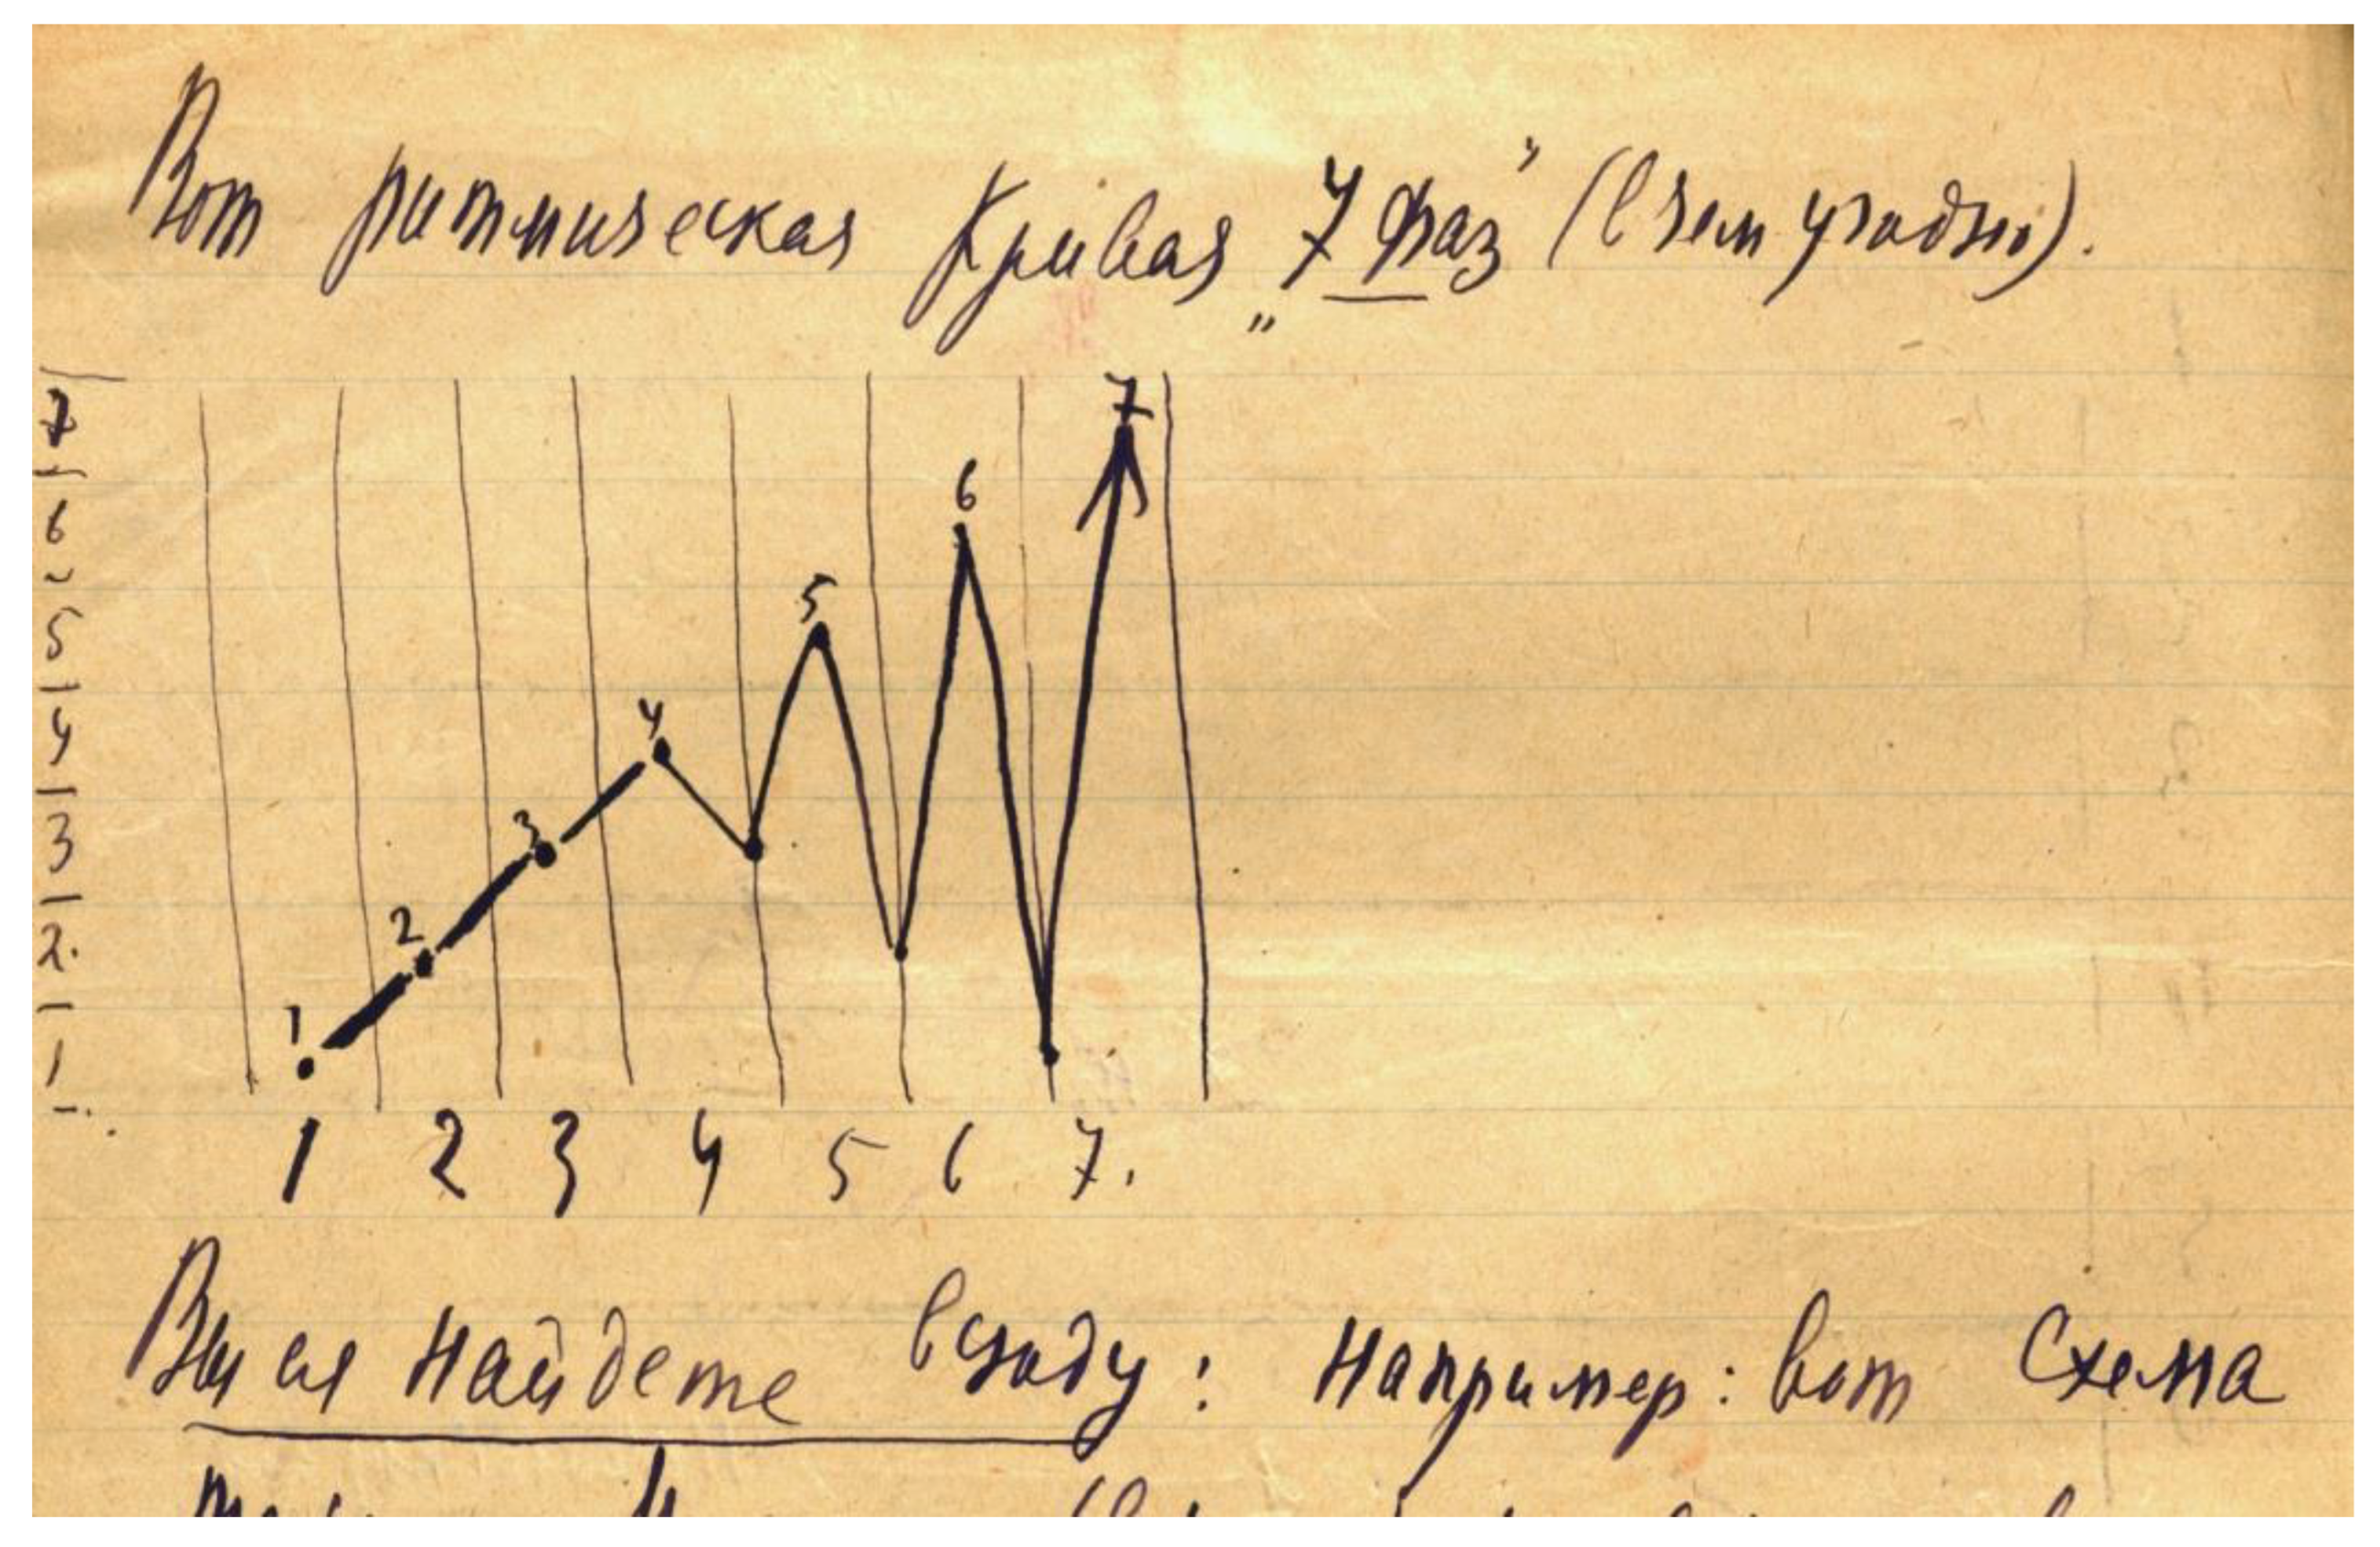 Вот ритмическая кривая „7 фаз" (в чем угодно).
7
6
5
4
3
2.
1
1 2 3 4 5 6 7
1 2 3 4 5 6 7.
Вы ея найдете всюду: Например: вот схема